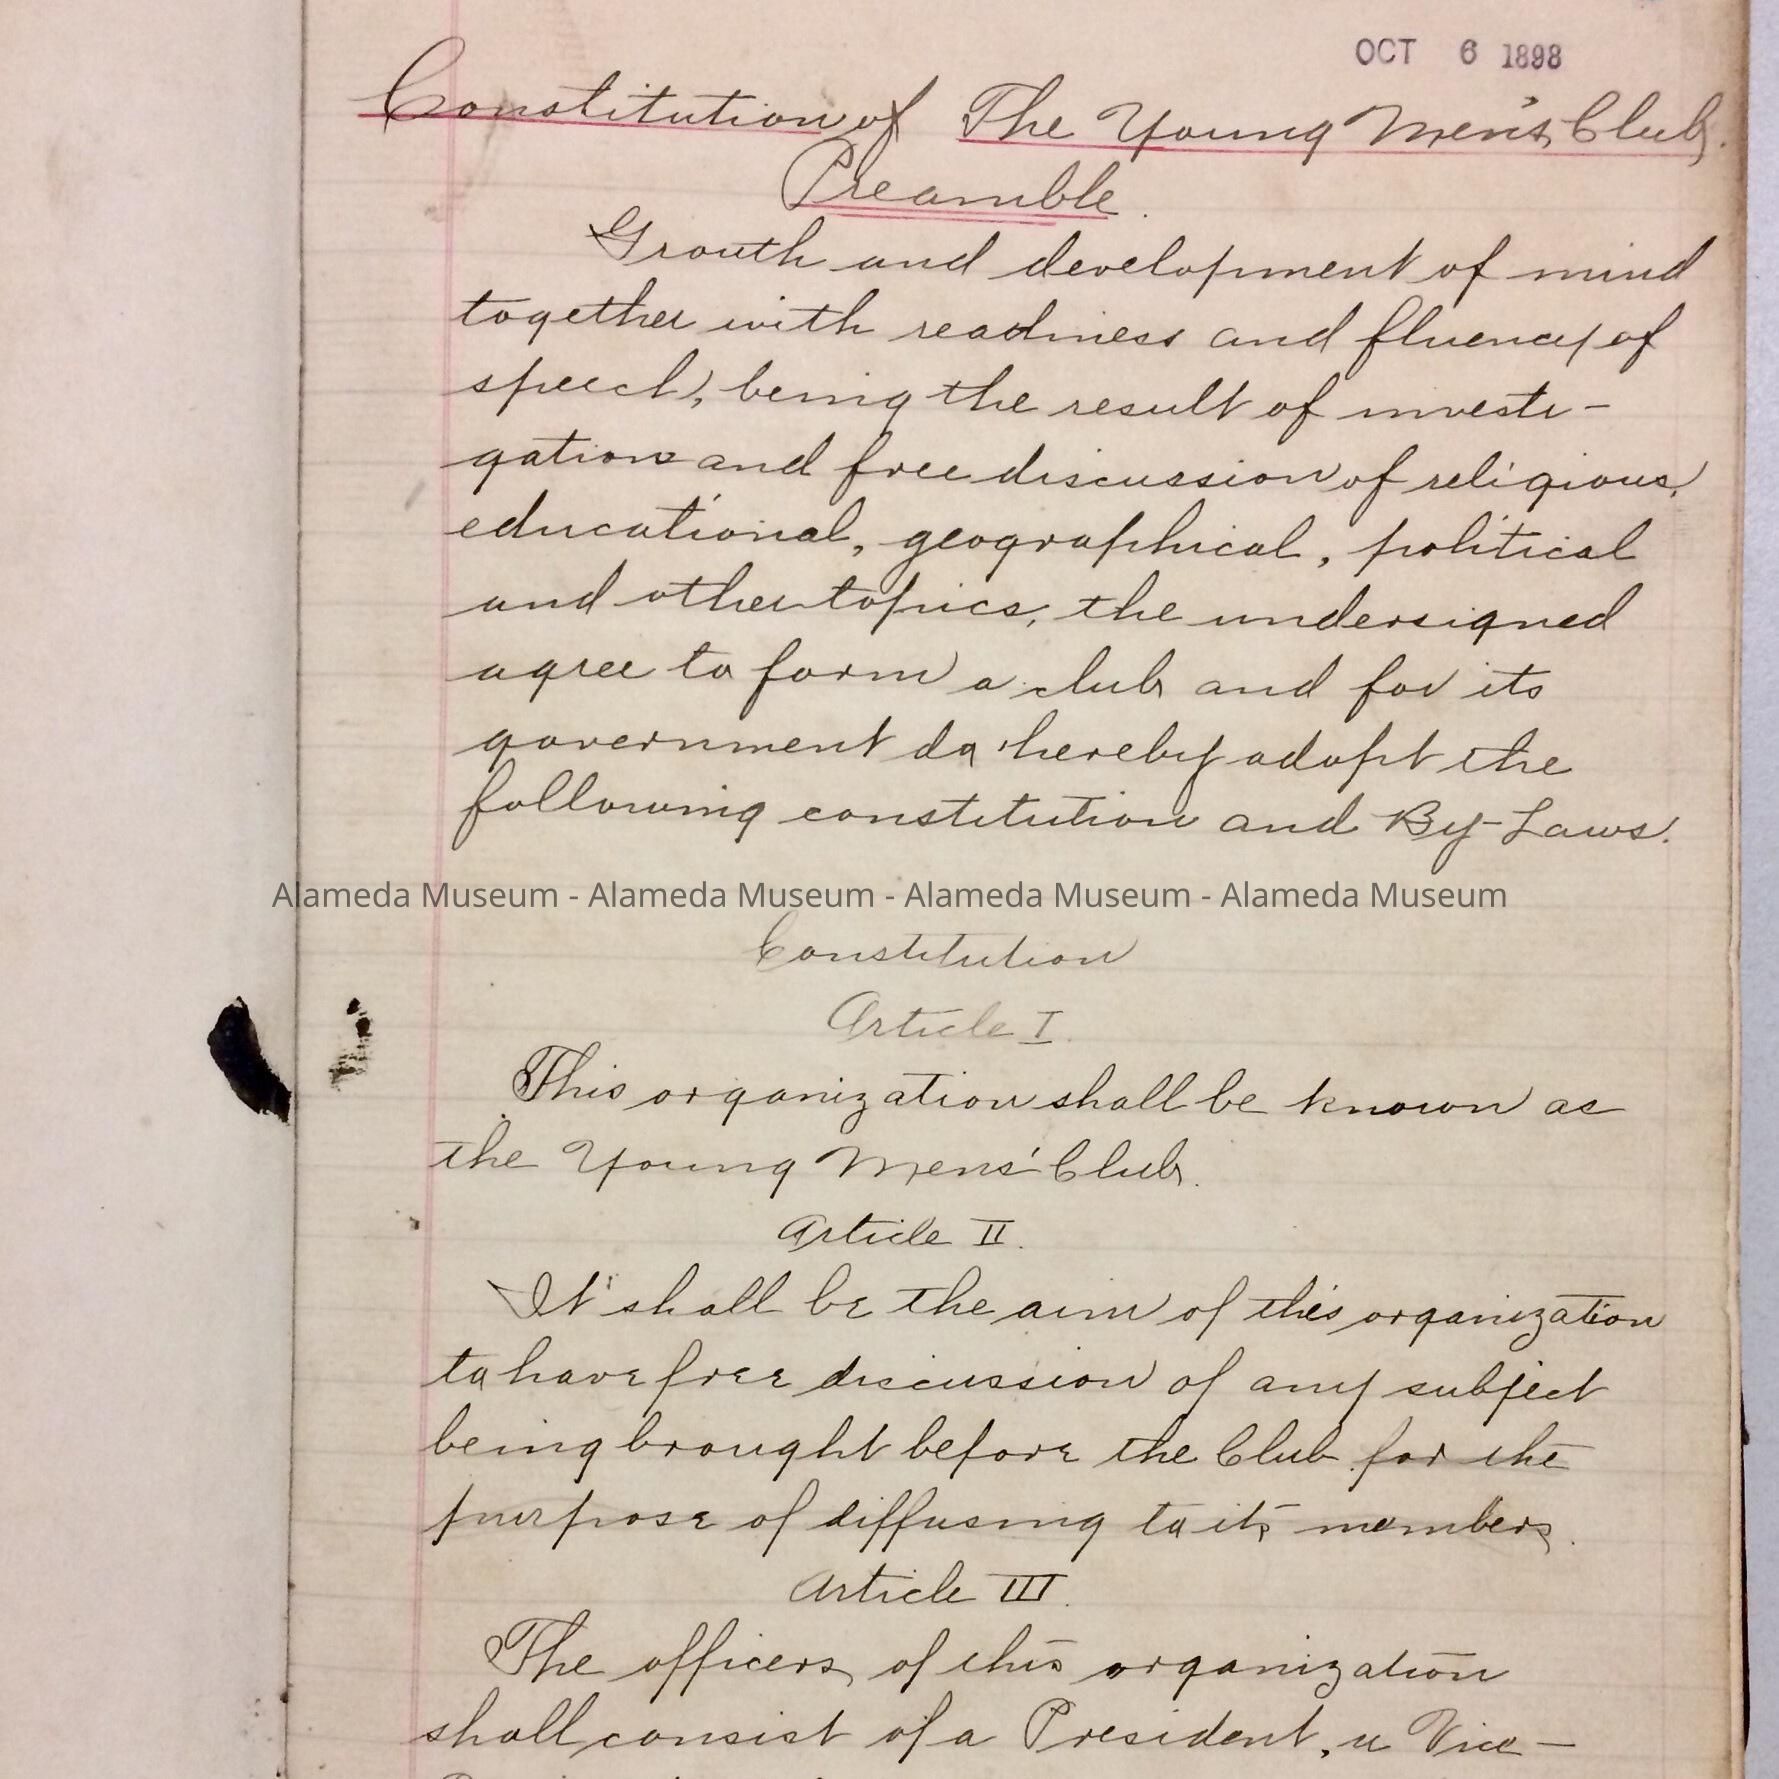 OCT 6 1898
Constitution of The Young Men's Club.
Preamble.
Growth and development of mind
together with readiness and fluency of
speech, being the result of investi-
gation and free discussion of religious,
educational, geographical, political
and other topics, the undersigned
agree to form a club and for its
government do hereby adopt the
following constitution and By-Laws.
Alameda Museum - Alameda Museum - Alameda Museum - Alameda Museum
Constitution
Article I.
This organization shall be known as
the Young Mens' Club.
Article II.
It shall be the aim of this organization
to have free discussion of any subject
being brought before the Club for the
purpose of diffusing to its members.
Article III.
The officers of this organization
shall consist of a President, a Vice-